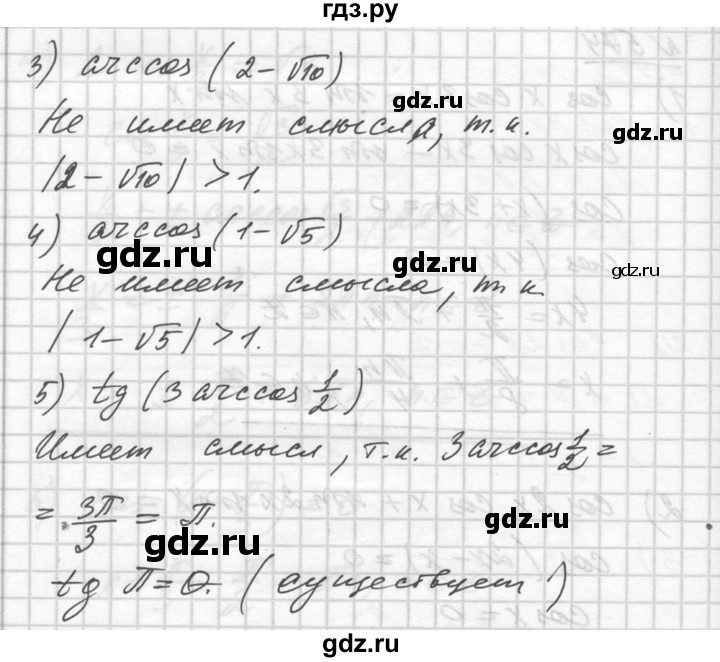 гдз.ру
3) arccos (2-√10)
Не имеет смысла, т.к.
|2-√10| > 1.
4) arccos (1-√5)
Не имеет смысла, т.к
|1-√5| > 1.
5) tg (3 arccos 1/2)
Имеет смысл, т.к. 3 arccos 1/2 =
= 3π/3 = π.
tg π = 0. (существует)
gdz.ru
gdz.ru
gdz.ru
gdz.ru
gdz.ru
gdz.ru
gdz.ru
gdz.ru
gdz.ru